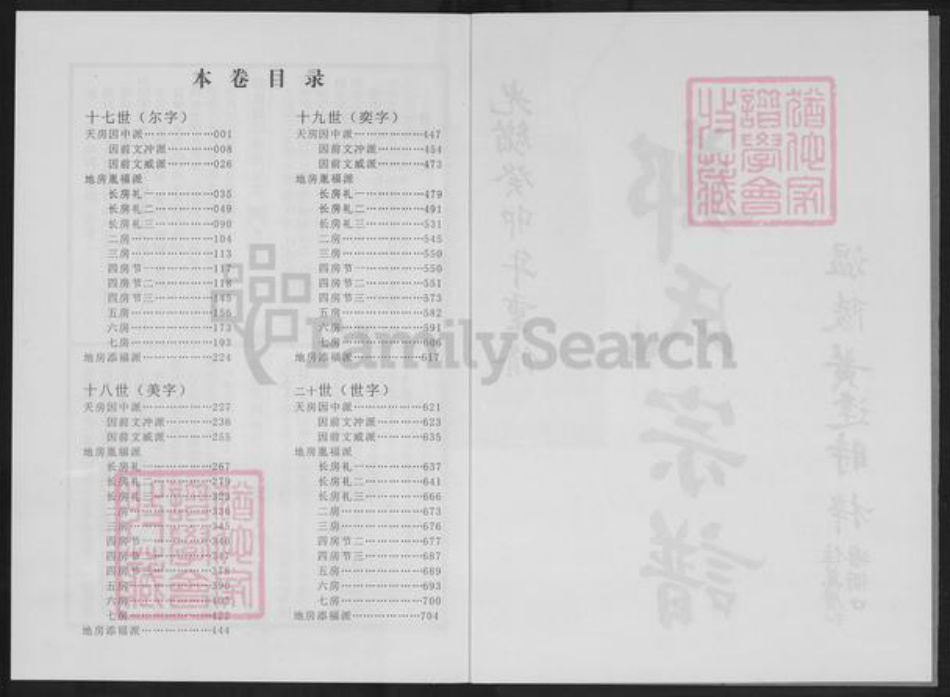 本卷目录
十七世（尔字）
天房因中派………………001
因前文冲派……………008
因前文威派……………026
地房胤福派
长房礼一………………035
长房礼二………………049
长房礼三………………090
二房……………………104
三房……………………113
四房节一………………117
四房节二………………118
四房节三………………145
五房……………………156
六房……………………173
七房……………………193
地房添福派………………224
十八世（美字）
天房因中派………………227
因前文冲派……………236
因前文威派……………255
地房胤福派
长房礼一………………267
长房礼二………………279
长房礼三………………323
二房……………………336
三房……………………345
四房节一………………346
四房节二………………347
四房节三………………378
五房……………………390
六房
七房
地房添福派………………444
十九世（奕字）
天房因中派………………447
因前文冲派……………454
因前文威派……………473
地房胤福派
长房礼一………………479
长房礼二………………491
长房礼三………………531
二房……………………545
三房……………………550
四房节一………………550
四房节二………………551
四房节三………………573
五房……………………582
六房……………………591
七房……………………606
地房添福派………………617
二十世（世字）
天房因中派………………621
因前文冲派……………623
因前文威派……………635
地房胤福派
长房礼一………………637
长房礼二………………641
长房礼三………………666
二房……………………673
三房……………………676
四房节二………………677
四房节三………………687
五房……………………689
六房……………………693
七房……………………700
地房添福派………………704
FamilySearch
猶他家
譜學會
收藏
猶他家
譜學會
收藏